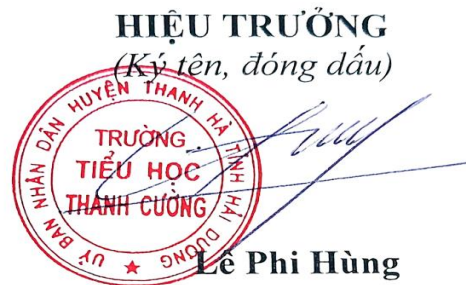 HIỆU TRƯỞNG
(Ký tên, đóng dấu)
ỦY BAN NHÂN DÂN HUYỆN THANH HÀ TỈNH HẢI DƯƠNG
TRƯỜNG
TIỂU HỌC
THANH CƯỜNG
Lê Phi Hùng